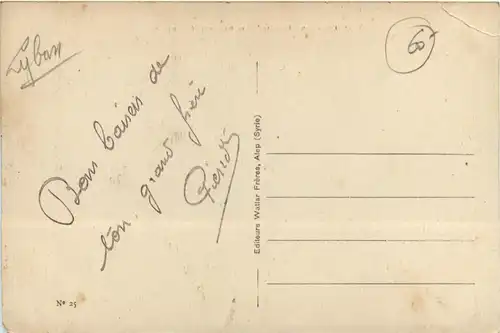 Bons baisers de
ton grand frère
Pierrot
Editeurs Wattar Frères, Alep (Syrie)
Nº 25